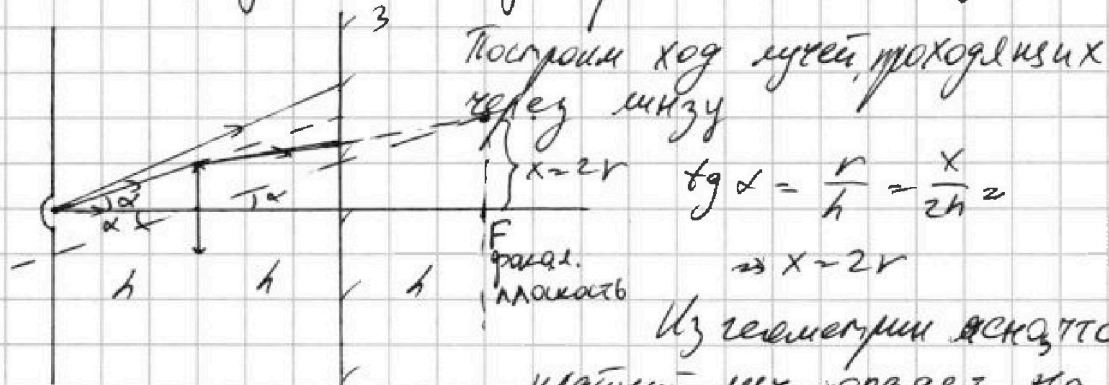 З
Построим ход лучей, проходящих
через линзу
x=2r
tg α = r/h = x/2h =
α
α
α
F
фокал.
плоскость
⇒ x=2r
h
h
h
Из геометрии ясно, что